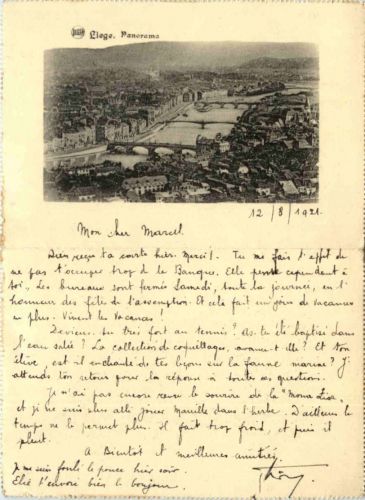 Liege. Panorama
12/8/1921.
Mon cher Marcel.
Bien reçu ta carte hier. Merci! Tu me fais l'effet de
ne pas t'occuper trop de la Banque. Elle pense cependant à
toi, Les bureaux sont fermés Samedi, toute la journée, en l'
honneur des fêtes de l'assomption. Et cela fait un jour de vacances
en plus. Vivent les Vacances!
Deviens-tu très fort au tennis? As-tu été baptisé dans
l'eau salée? La collection de coquillages, avance-t-elle? Et ton
élève, est-il enchanté de tes leçons sur la faune marine? J'
attends ton retour pour la réponse à toutes ces questions.
Je n'ai pas encore revu le sourire de la "Mona Lisa",
et je ne suis plus allé jouer Manille dans l'herbe. D'ailleurs le
temps ne le permet plus. Il fait trop froid, et puis il
pleut.
A Bientôt et meilleures amitiés,
Je me suis foulé le pouce hier soir.
Elsé t'envoie bien le bonjour.